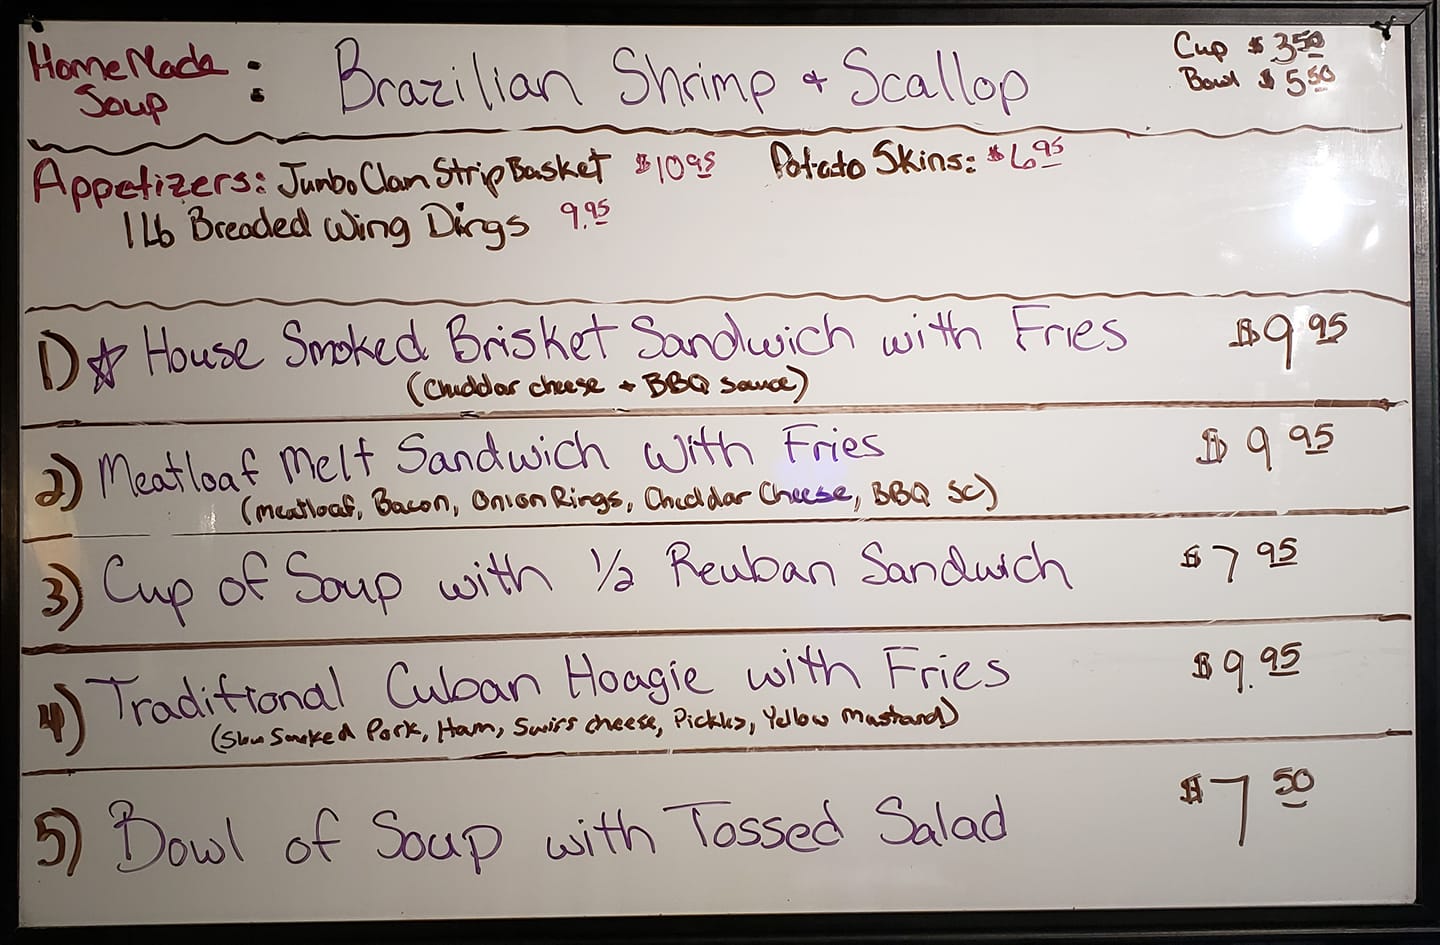 HomeMade Soup : Brazilian Shrimp + Scallop
Cup $3.50
Bowl $5.50
Appetizers: Jumbo Clam Strip Basket $10.95 Potato Skins: $6.95
1 Lb Breaded Wing Dings 9.95
1) ☆ House Smoked Brisket Sandwich with Fries $9.95
(Cheddar cheese + BBQ Sauce)
2) Meatloaf Melt Sandwich with Fries $9.95
(meatloaf, Bacon, Onion Rings, Cheddar Cheese, BBQ SC)
3) Cup of Soup with 1/2 Reuban Sandwich $7.95
4) Traditional Cuban Hoagie with Fries $9.95
(Slow Smoked Pork, Ham, Swiss cheese, Pickles, Yellow Mustard)
5) Bowl of Soup with Tossed Salad $7.50